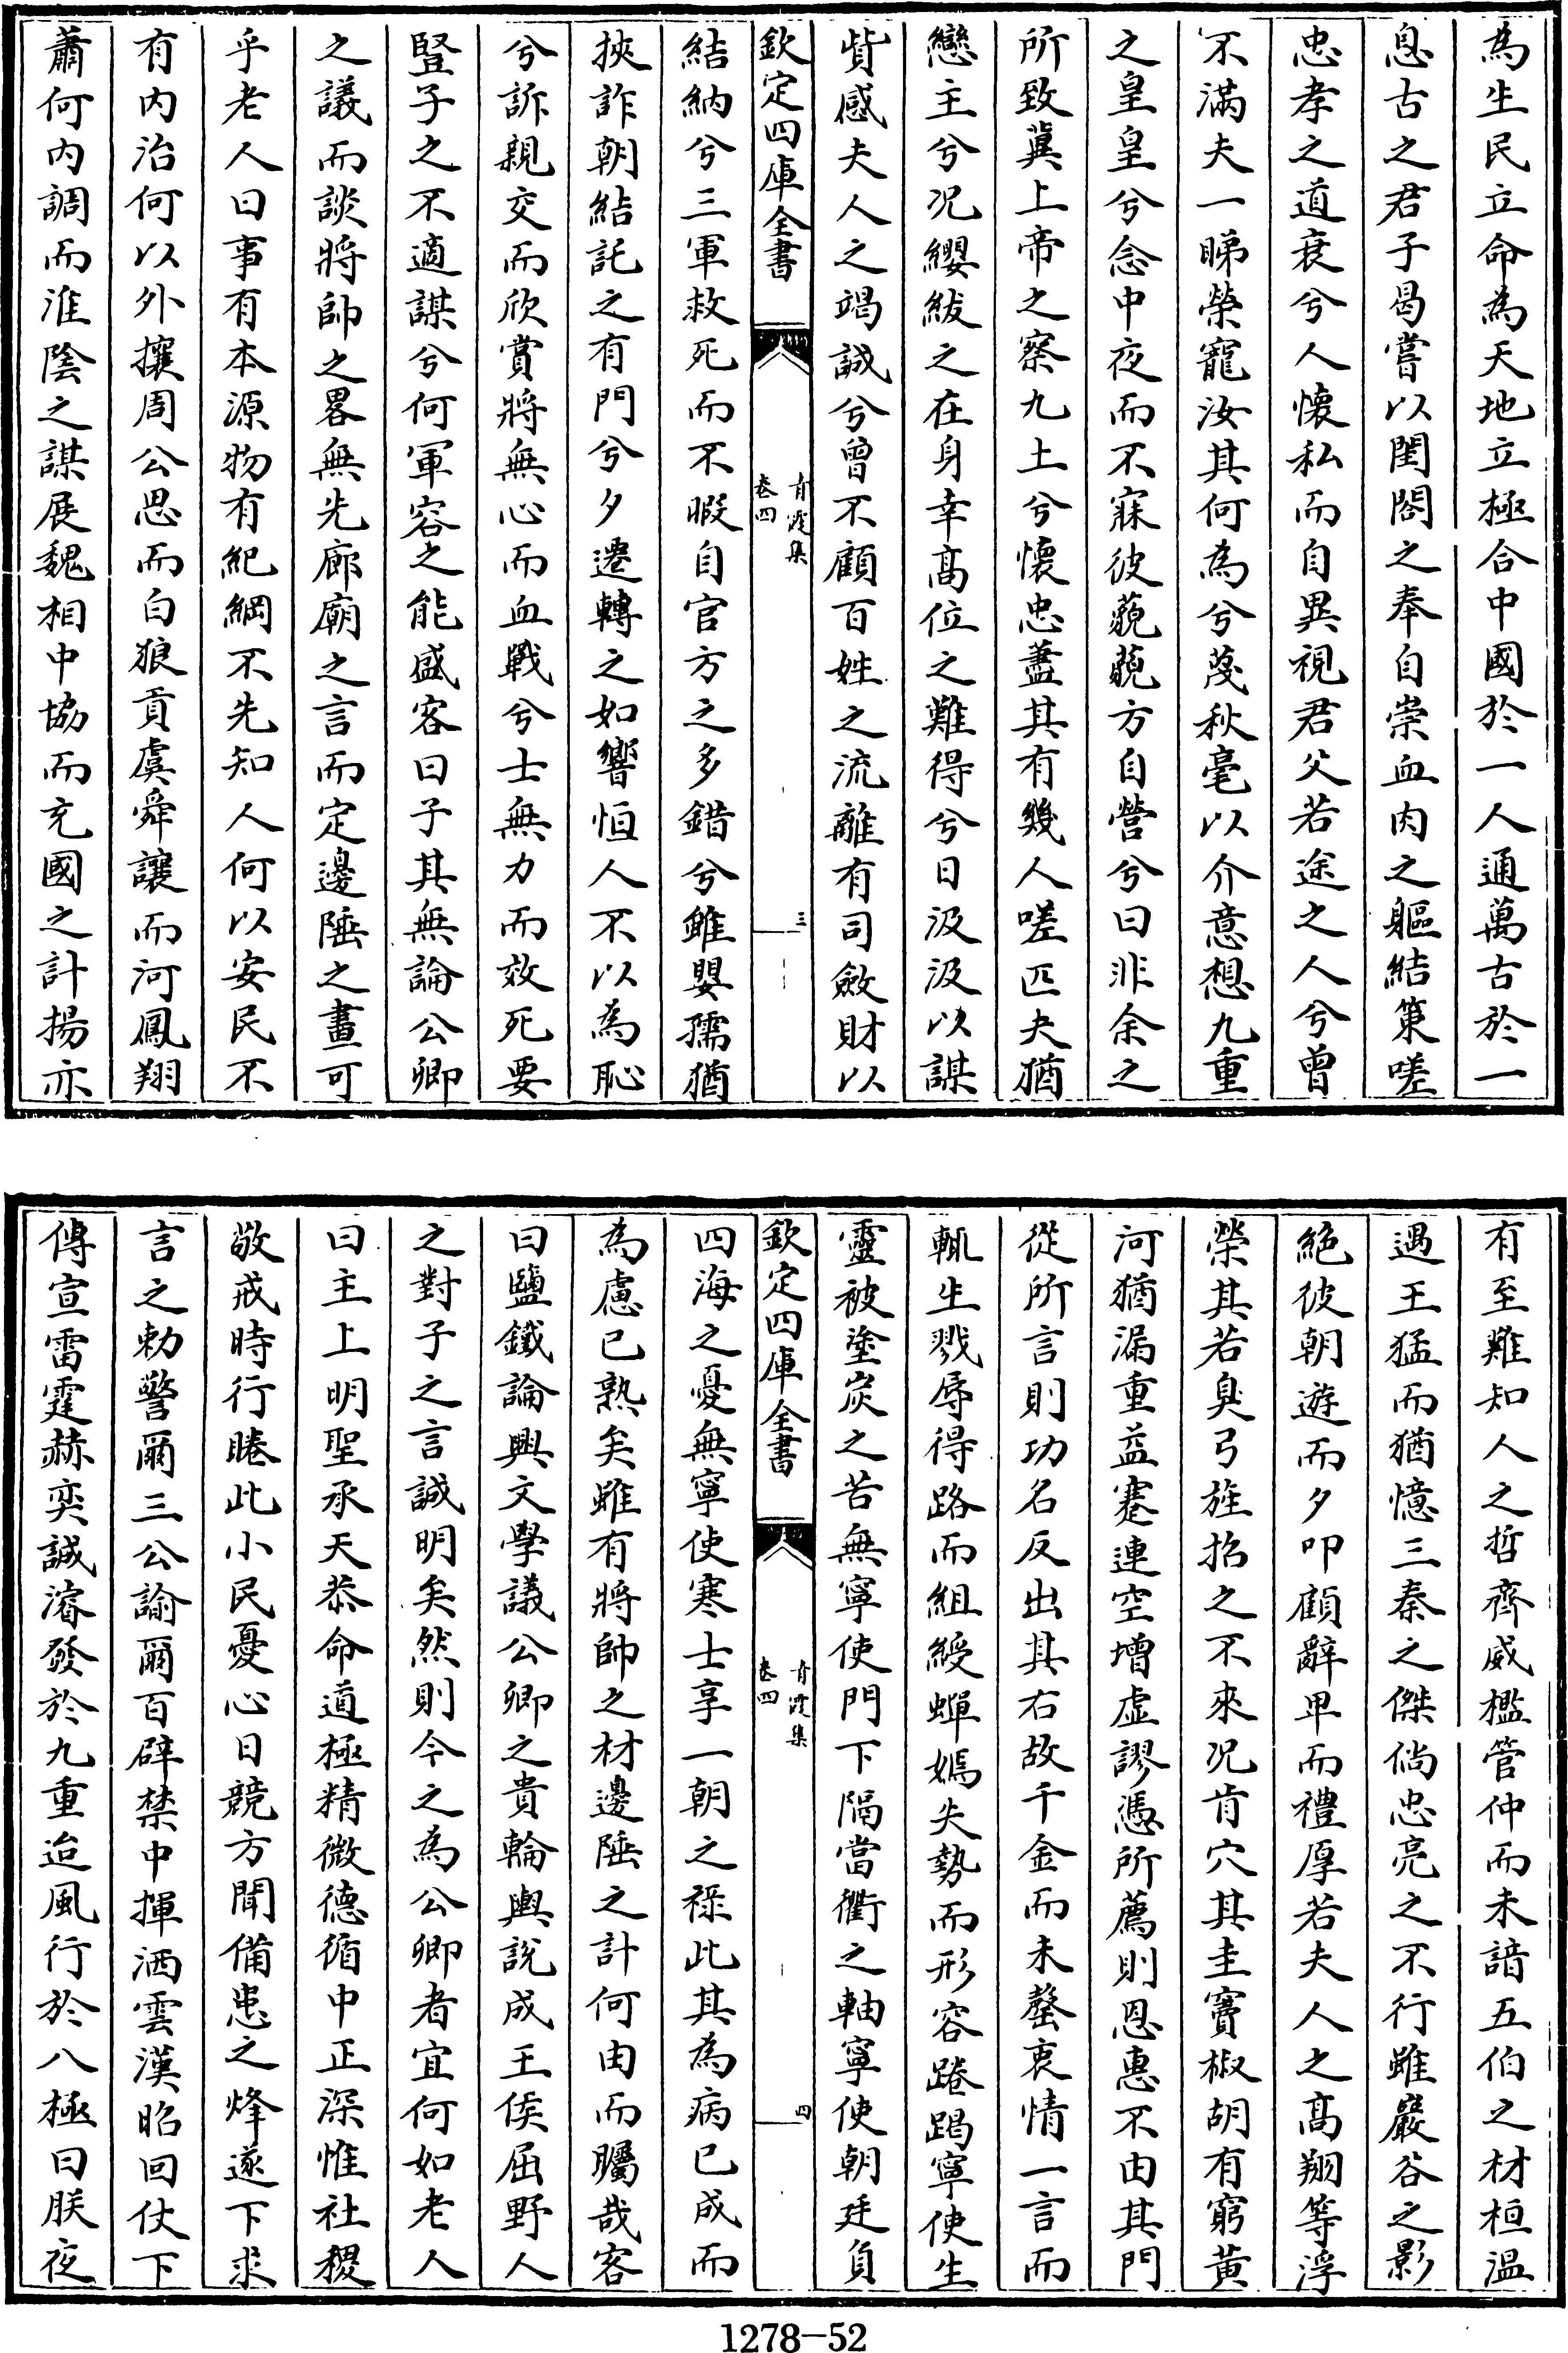 為生民立命為天地立極合中國於一人通萬古於一
息古之君子曷嘗以閨閤之奉自崇血肉之軀結策嗟
忠孝之道衰兮人懷私而自異視君父若途之人兮曾
不滿夫一睇榮寵汝其何為兮蔑秋毫以介意想九重
之皇皇兮念中夜而不寐彼藐藐方自營兮曰非余之
所致冀上帝之察九土兮懷忠藎其有幾人嗟匹夫猶
戀主兮况纓紱之在身幸髙位之難得兮日汲汲以謀
貲感夫人之竭誠兮曾不顧百姓之流離有司斂財以
欽定四庫全書
青霞集
卷四
三
結納兮三軍救死而不暇自官方之多錯兮雖嬰孺猶
挾詐朝結託之有門兮夕遷轉之如響恒人不以為恥
兮訴親交而欣賞將無心而血戰兮士無力而效死要
豎子之不適謀兮何軍容之能盛客曰子其無論公卿
之議而談將帥之畧無先廊廟之言而定邊陲之畫可
乎老人曰事有本源物有紀綱不先知人何以安民不
有内治何以外攘周公思而白狼貢虞舜讓而河鳳翔
蕭何内調而淮陰之謀展魏相中協而充國之計揚亦
有至難知人之哲齊威檻管仲而未諳五伯之材桓溫
遇王猛而猶憶三秦之傑倘忠亮之不行雖巖谷之影
絕彼朝遊而夕叩顧辭卑而禮厚若夫人之髙翔等浮
榮其若臭弓旌招之不來况肯穴其圭竇椒胡有窮黃
河猶漏重益蹇連空增虛謬憑所薦則恩惠不由其門
從所言則功名反出其右故千金而未罄衷情一言而
輒生戮辱得路而組綬蟬嫣失勢而形容踡跼寧使生
靈被塗炭之苦無寧使門下隔當衢之軸寧使朝廷負
欽定四庫全書
青霞集
卷四
四
四海之憂無寧使寒士享一朝之祿此其為病已成而
為慮已熟矣雖有將帥之材邊陲之計何由而矚哉客
曰鹽鐵論興文學議公卿之貴輪輿說成王侯屈野人
之對子之言誠明矣然則今之為公卿者宜何如老人
曰主上明聖承天恭命道極精微德循中正深惟社稷
敬戒時行睠此小民憂心日競方聞備患之烽遂下求
言之勅警爾三公諭爾百辟禁中揮洒雲漢昭回仗下
傳宣雷霆赫奕誠濬發於九重迨風行於八極曰朕夜
1278—52